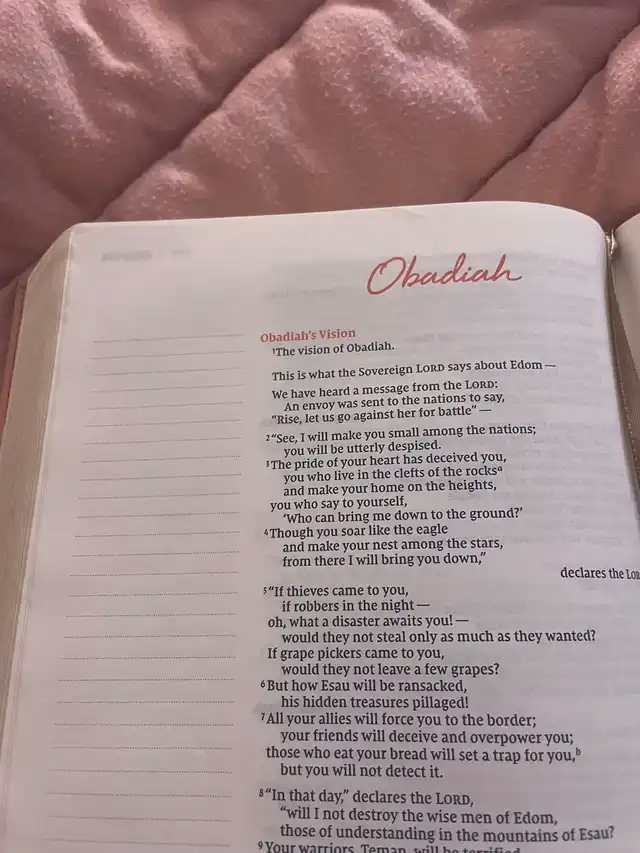 Obadiah
Obadiah's Vision
¹The vision of Obadiah.
This is what the Sovereign LORD says about Edom—
We have heard a message from the LORD:
An envoy was sent to the nations to say,
“Rise, let us go against her for battle”—
²“See, I will make you small among the nations;
you will be utterly despised.
³The pride of your heart has deceived you,
you who live in the clefts of the rocksᵃ
and make your home on the heights,
you who say to yourself,
‘Who can bring me down to the ground?’
⁴Though you soar like the eagle
and make your nest among the stars,
from there I will bring you down,”
declares the LO
⁵“If thieves came to you,
if robbers in the night—
oh, what a disaster awaits you!—
would they not steal only as much as they wanted?
If grape pickers came to you,
would they not leave a few grapes?
⁶But how Esau will be ransacked,
his hidden treasures pillaged!
⁷All your allies will force you to the border;
your friends will deceive and overpower you;
those who eat your bread will set a trap for you,ᵇ
but you will not detect it.
⁸“In that day,” declares the LORD,
“will I not destroy the wise men of Edom,
those of understanding in the mountains of Esau?
⁹Your warriors, Teman, will be terrified